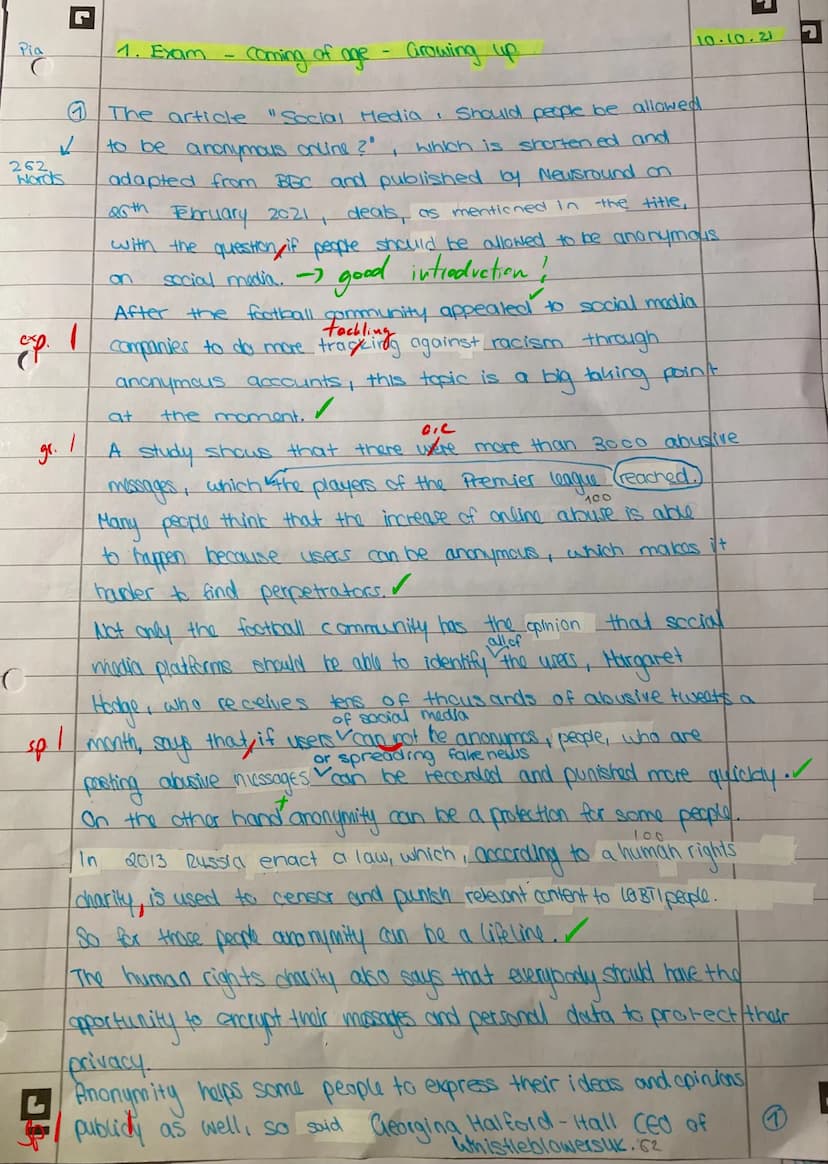 Pia
1. Exam - Coming of age - Growing up
10.10.21
① The article "Social Media: Should people be allowed
262 Words
to be anonymous online?", which is shortened and
adapted from BBC and published by Newsround on
26th February 2021, deals, as mentioned in the title,
with the question, if people should be allowed to be anonymous
on social media. → good introduction!
After the football community appealed to social media
tackling
exp. 1
companies to do more tracking against racism through
anonymous accounts, this topic is a big talking point
at the moment.
are
gr. 1
A study shows that there were more than 3000 abusive
messages, which the players of the Premier league reached.
100
Many people think that the increase of online abuse is able
to happen because users can be anonymous, which makes it
harder to find perpetrators.
Not only the football community has the opinion that social
all of
media platforms should be able to identify the users, Margaret
Hodge, who receives tens of thousands of abusive tweets a
of social media
sp 1
month, says that, if users can not be anonymos, people, who are
or spreading fake news
posting abusive messages can be recorded and punished more quickly.
On the other hand anonymity can be a protection for some people.
100
In 2013 Russia enact a law, which, according to a human rights
charity, is used to censor and punish relevant content to LGBTI people.
So for those people anonymity can be a lifeline.
The human rights charity also says that everybody should have the
opportunity to encrypt their messages and personal data to protect their
privacy.
Anonymity helps some people to express their ideas and opinions
sp 1
publicly as well, so said Georgina Halford-Hall CEO of
WhistleblowersUK. 62
①